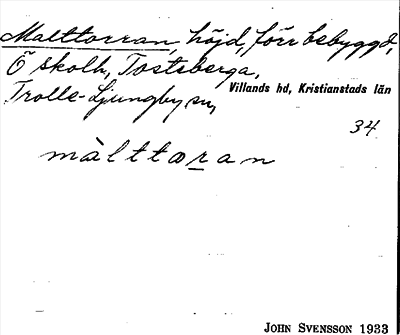 Malttorran, höjd, förr bebyggd,
Ö skolh, Tosteberga,
Trolle-Ljungby sn,
Villands hd, Kristianstads län
34
màlttoran
JOHN SVENSSON 1933